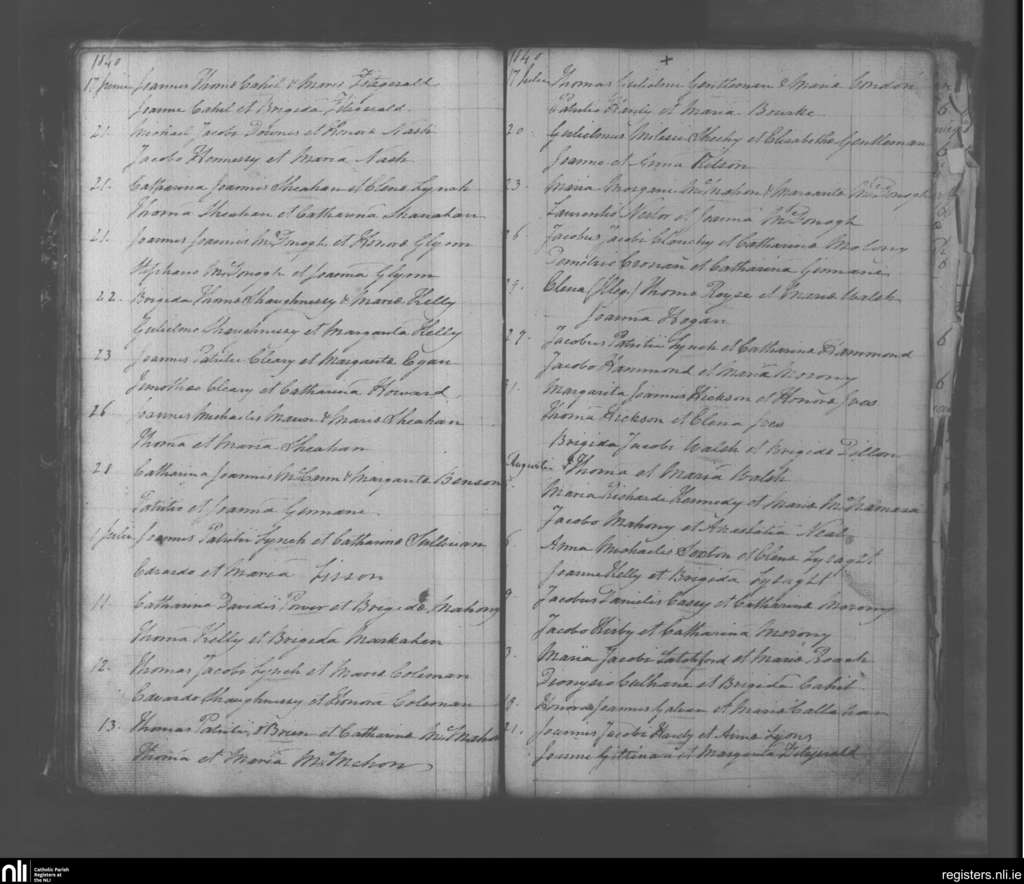 1840
17 Junii Joannes Thomæ Cahil & Mariæ Fitzgerald
Joanne Cahil et Brigida Fitzgerald
21. Michael Jacobi Downes et Honoræ Nash
Jacobo Hennessy et Maria Nash
21. Catharina Joannis Sheahan et Elenæ Lynch
Thoma Sheahan et Catharina Shanahan
21. Joannes Joannis McDonogh et Honoræ Glynn
Stephano McDonogh et Joanna Glynn
22. Brigida Thomæ Shaughnessy & Mariæ Kelly
Gulielmo Shaughnessy et Margarita Kelly
23 Joannes Patritii Cleary et Margaritæ Egan
Timotheo Cleary et Catharina Howard
26 Joannes Michaelis & Mariæ Sheahan
Thoma et Maria Sheahan
28 Catharina Joannis & Margaritæ Benson
Patritio et Joanna Germane
1 Julii Joannes Patritii Lynch et Catharinæ Sullivan
Edvardo et Maria
11 Catharina Davidis Power et Brigidæ Mahony
Thoma Kelly et Brigida
12. Thomas Jacobi Lynch et Mariæ Coleman
Edvardo Shaughnessy et Honora Coleman
13. Thomas Patritii et Catharinæ McMahon
Thoma et Maria McMahon
1840
17 Julii Thomas Gulielmi Gentleman & Mariæ Condon
Patritio Hardy et Maria Bourke
20. Gulielmus Sheehy et Elisabethæ Gentleman
Joanne et Anna Wilson
23. Maria Morgani McMahon & Margaritæ McDonogh
Laurentio et Joanna McDonogh
26 Jacobus Jacobi Clanchy et Catharinæ Molony
Cronan et Catharina Germane
29. Elena (Illeg.) Thomæ Royse et Mariæ Walsh
Joanna Hogan
29. Jacobus Patritii Lynch et Catharinæ Hammond
Jacobo Hammond et Maria Morony
31. Margarita Joannis Hickson et Honoræ Ives
Thoma Hickson et Elena Ives
Brigida Jacobi Walsh et Brigidæ Dillon
Augustii Thoma et Maria Walsh
Maria Richardi Kennedy et Mariæ McNamara
Jacobo Mahony et Anastatia Neal
6. Anna Michaelis Sexton et Elenæ Lysaght
Joanne Kelly et Brigida Lysaght
9. Jacobus Danielis Casey et Catharinæ Morony
Jacobo Kirby et Catharina Morony
3. Maria Jacobi Latchford et Mariæ Roach
Dionysio Culhane et Brigida Cahil
Honora Joannis et Mariæ Callahan
21. Joannes Jacobi Hardy et Annæ Lyons
Joanne et Margarita Fitzgerald
nli Catholic Parish
Registers at
the NLI
registers.nli.ie